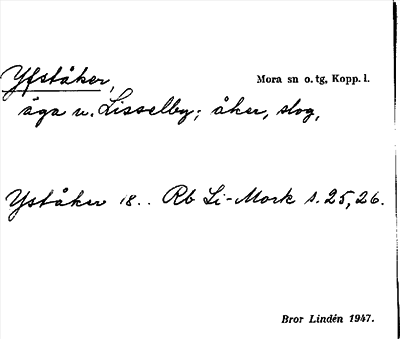 Yfståker, Mora sn o. tg, Kopp. l.
äga u. Lisselby; åker, slog,
Yståker 18.. Rb Li-Mork s. 25, 26.
Bror Lindén 1947.